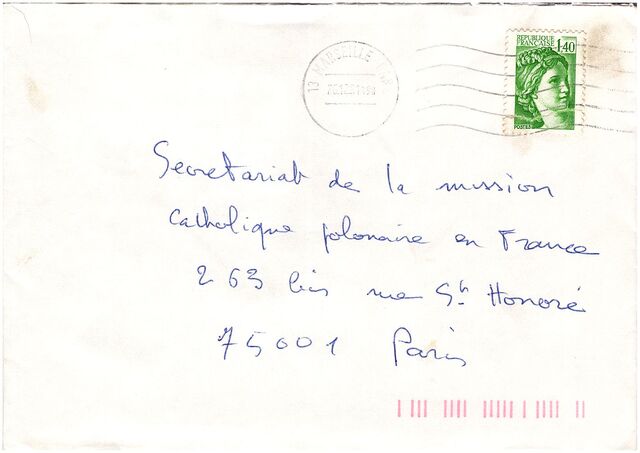 REPUBLIQUE
FRANCAISE 1,40
POSTES
13 MARSEILLE
Secretariat de la mission
Catholique polonaise en France
263 bis rue St Honoré
75001 Paris